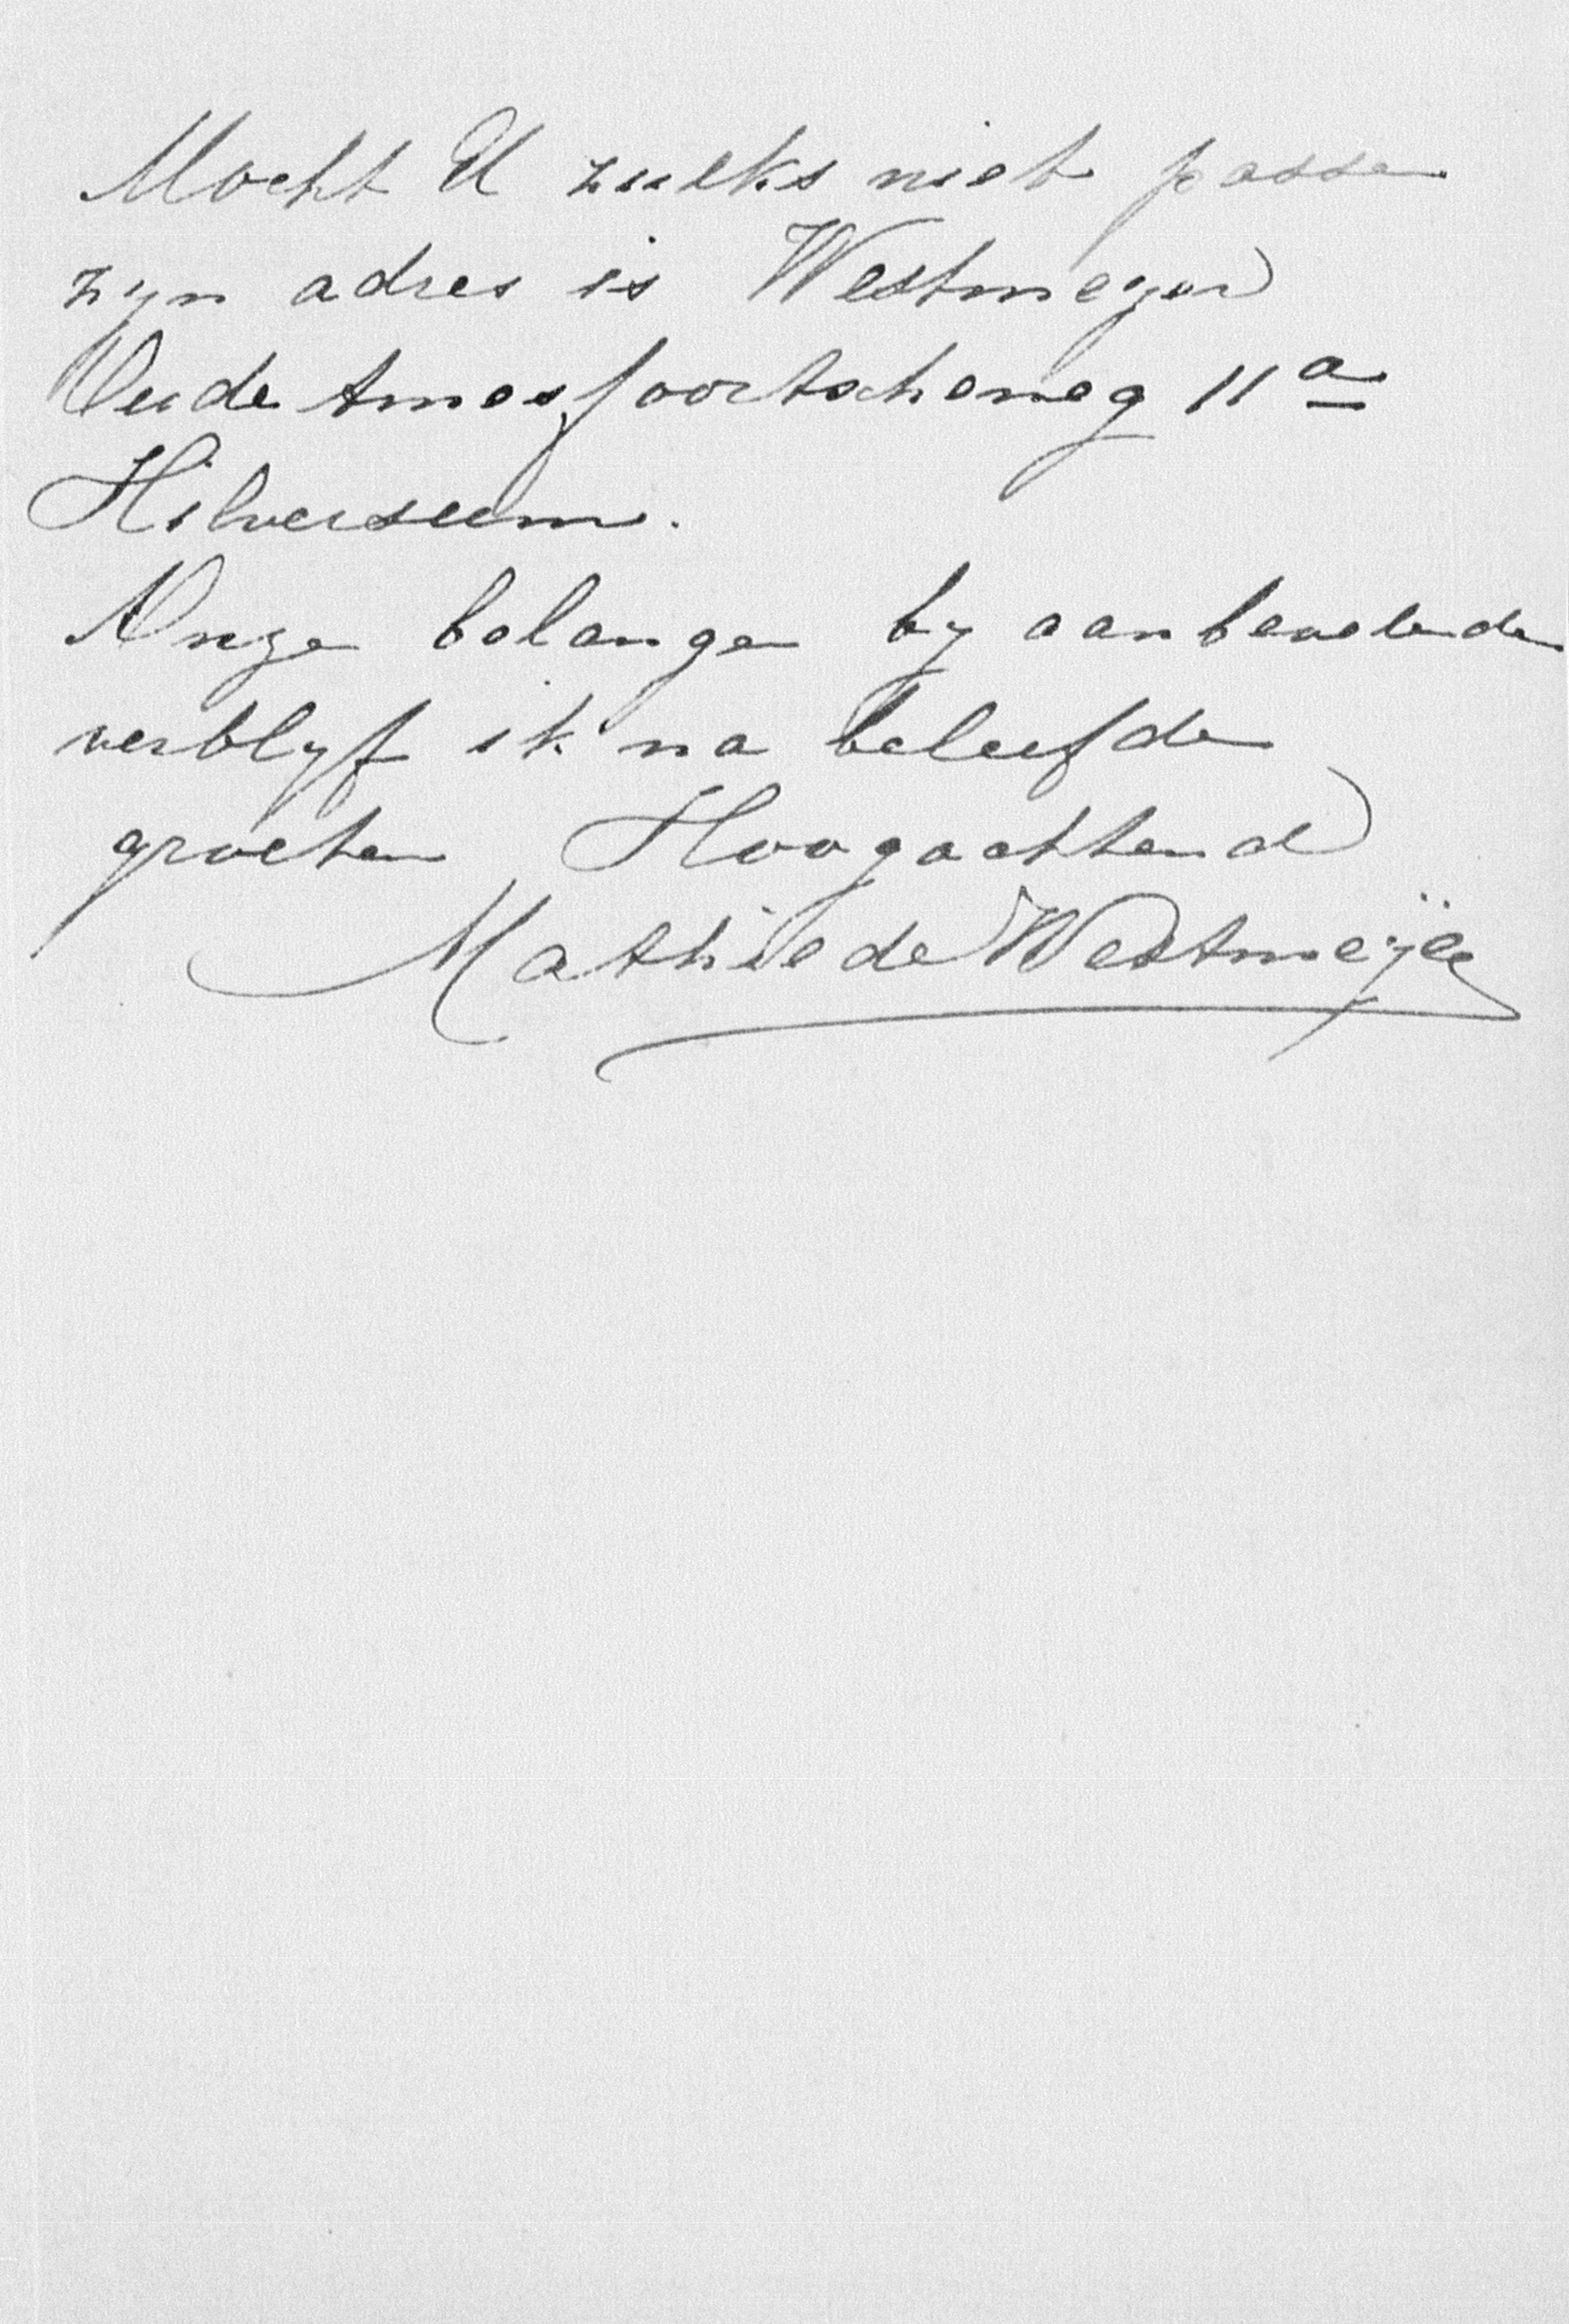 Mocht U zulks niet passen
zyn adres is Westmeyer
Oude Amersfoortscheweg 11a
Hilversum.
Onze belangen by aanbevelende
verblyf ik na beleefde
groeten Hoogachtend
Mathilde Westmeijer